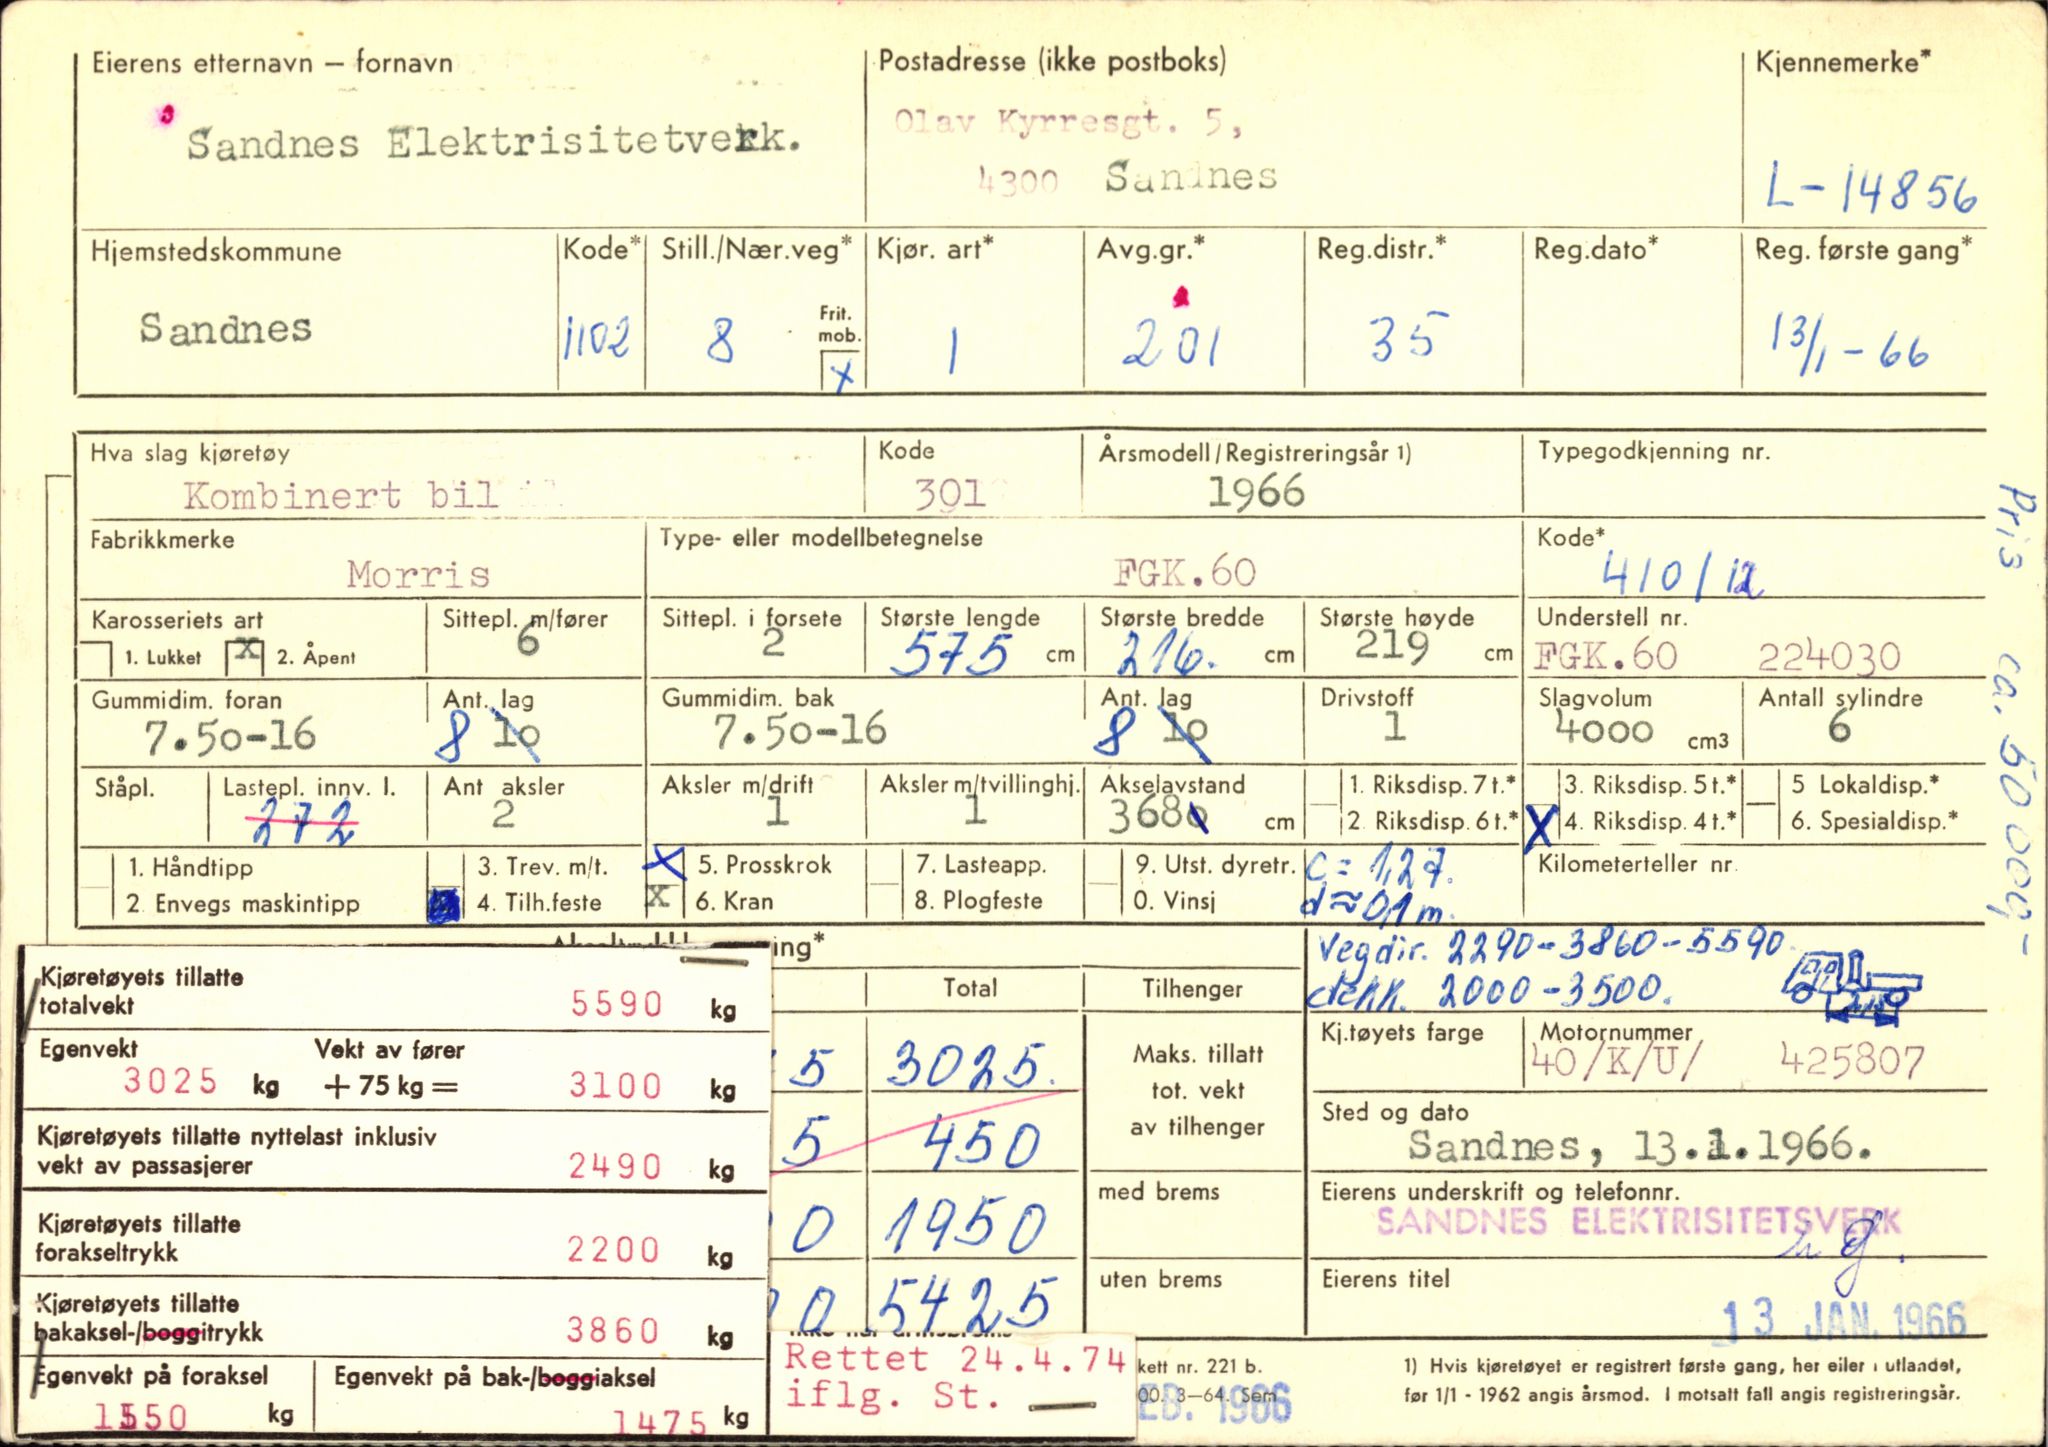 Eierens etternavn – fornavn
Sandnes Elektrisitetverk.
Postadresse (ikke postboks)
Olav Kyrresgt. 5,
4300 Sandnes
Kjennemerke*
L-14856
Hjemstedskommune
Sandnes
Kode*
1102
Still./Nær.veg*
8
Frit. mob.
x
Kjør. art*
1
Avg.gr.*
201
Reg.distr.*
35
Reg.dato*
Reg. første gang*
13/1-66
Hva slag kjøretøy
Kombinert bil
Kode
301
Årsmodell/Registreringsår 1)
1966
Typegodkjenning nr.
Fabrikkmerke
Morris
Type- eller modellbetegnelse
FGK.60
Kode*
410/12
Karosseriets art
1. Lukket X 2. Åpent
Sittepl. m/fører
6
Sittepl. i forsete
2
Største lengde
575 cm
Største bredde
216. cm
Største høyde
219 cm
Understell nr.
FGK.60 224030
Gummidim. foran
7.50-16
Ant. lag
8 10
Gummidim. bak
7.50-16
Ant. lag
8 10
Drivstoff
1
Slagvolum
4000 cm3
Antall sylindre
6
Ståpl.
Lastepl. innv. l.
272
Ant aksler
2
Aksler m/drift
1
Aksler m/tvillinghj.
1
Akselavstand
3680 cm
1. Riksdisp. 7 t.*
2. Riksdisp. 6 t.*
3. Riksdisp. 5 t.*
X 4. Riksdisp. 4 t.*
5 Lokaldisp.*
6. Spesialdisp.*
1. Håndtipp
2. Envegs maskintipp
3. Trev. m/t.
4. Tilh.feste
X 5. Prosskrok
X 6. Kran
7. Lasteapp.
8. Plogfeste
9. Utst. dyretr.
0. Vinsj
c = 1,27.
d ≈ 0,1 m.
Kilometerteller nr.
Pris ca. 50 000,-
ing*
Total
Tilhenger
5 3025.
5 450
0 1950
0 5425
Maks. tillatt
tot. vekt
av tilhenger
med brems
uten brems
Vegdir. 2290-3860-5590.
dekk. 2000-3500.
Kj.tøyets farge
Motornummer
40/K/U/ 425807
Sted og dato
Sandnes, 13.1.1966.
Eierens underskrift og telefonnr.
SANDNES ELEKTRISITETSVERK
Eierens titel
13 JAN. 1966
Kjøretøyets tillatte
totalvekt 5590 kg
Egenvekt Vekt av fører
3025 kg + 75 kg = 3100 kg
Kjøretøyets tillatte nyttelast inklusiv
vekt av passasjerer 2490 kg
Kjøretøyets tillatte
forakseltrykk 2200 kg
Kjøretøyets tillatte
bakaksel-/boggitrykk 3860 kg
Egenvekt på foraksel
1550 kg
Egenvekt på bak-/boggiaksel
1475 kg
Rettet 24.4.74
iflg. St.
kett nr. 221 b.
00. 3–64. Sem
EB. 1966
1) Hvis kjøretøyet er registrert første gang, her eller i utlandet,
før 1/1 - 1962 angis årsmod. I motsatt fall angis registreringsår.